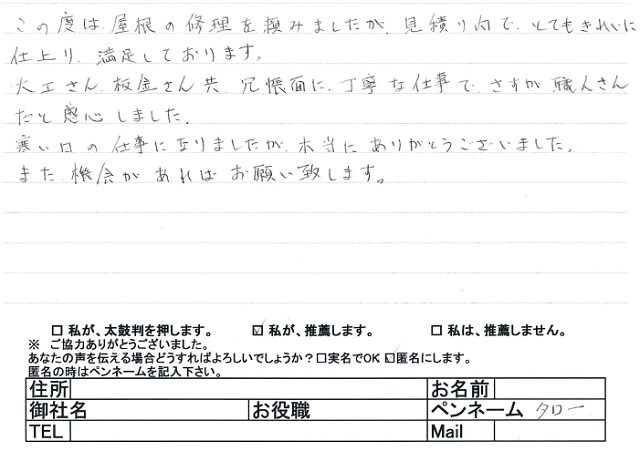 この度は屋根の修理を頼みましたが、見積り内で、とてもきれいに
仕上り、満足しております。
大工さん、板金さん共、冗帳面に、丁寧な仕事で、さすが職人さん
だと感心しました。
寒い日の仕事になりましたが、本当にありがとうございました。
また機会があればお願い致します。
□ 私が、太鼓判を押します。 ☑ 私が、推薦します。 □ 私は、推薦しません。
※ ご協力ありがとうございました。
あなたの声を伝える場合どうすればよろしいでしょうか？□実名でOK ☑匿名にします。
匿名の時はペンネームを記入下さい。
住所 お名前
御社名 お役職 ペンネーム タロー
TEL Mail